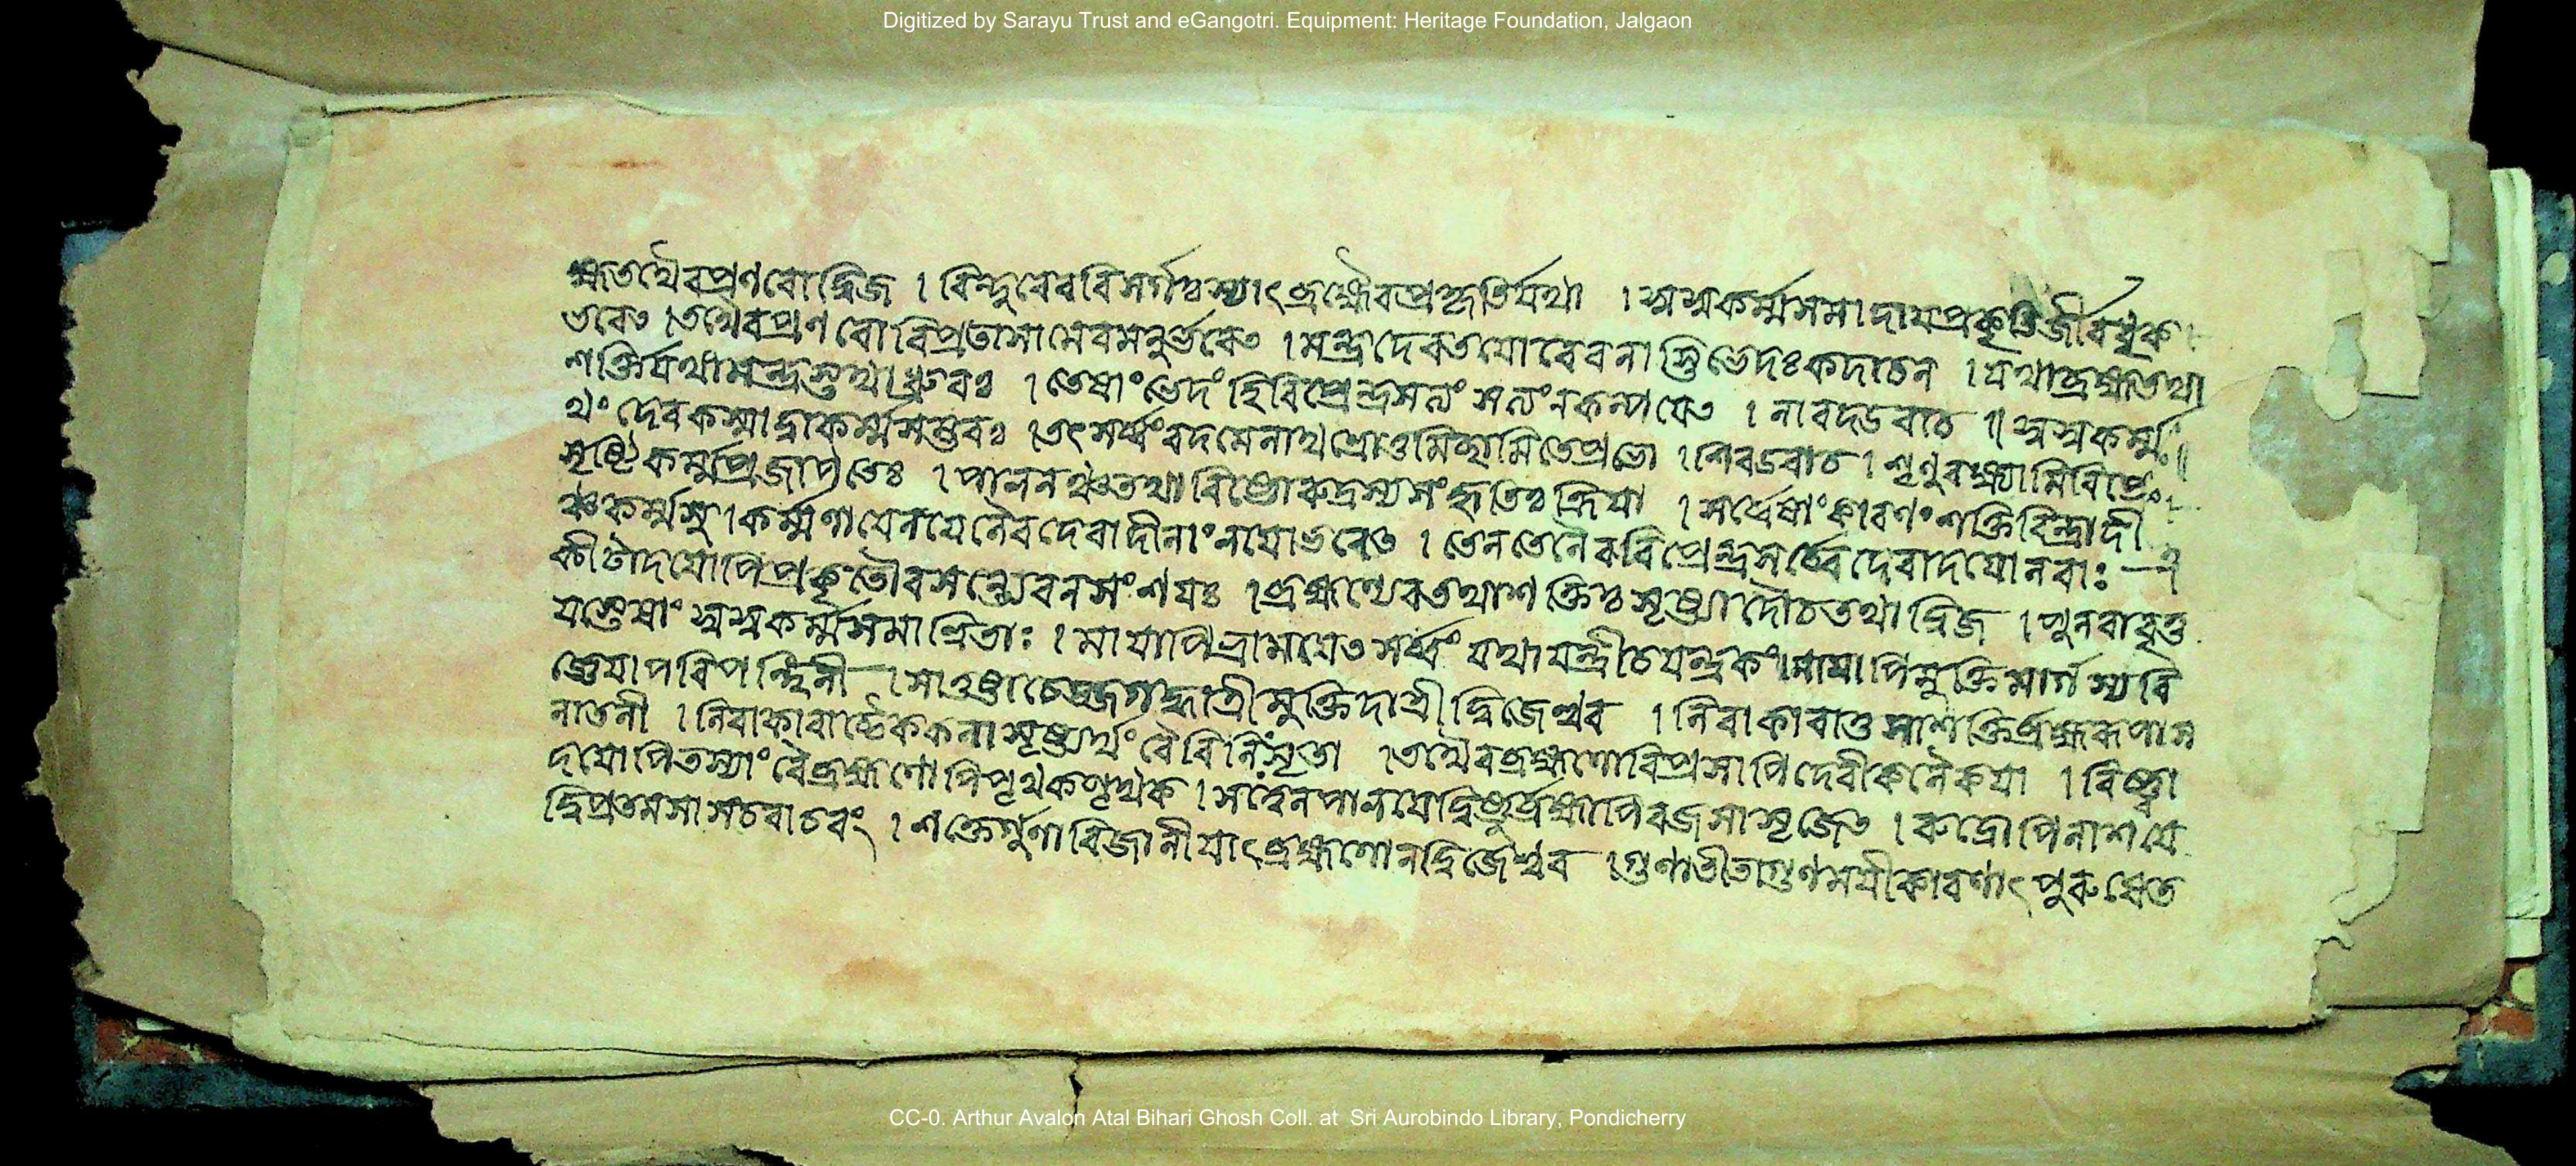 Digitized by Sarayu Trust and eGangotri. Equipment: Heritage Foundation, Jalgaon
হ্মতথৈবপ্রণবোদ্বিজ । বিন্দুরেববিসর্গঃস্যাৎব্রহ্মৈবপ্রকৃতির্যথা । স্বস্বকর্ম্মসমাদায়প্রকৃতি
ভবেৎ । তথৈবপ্রণবোবিপ্র । মন্ত্রদেবতয়োরেবনাস্তিভেদঃকদাচন । যথাব্রহ্মতথা
শক্তির্যথামন্ত্রস্তথাধ্রুবঃ । তেষাংভেদংহিবিপ্রেন্দ্রসত্যংসত্যংনকল্পয়েৎ । নারদউবাচ ॥ স্বস্বকর্ম্ম
থংদেবকস্মাদ্বাকর্ম্মসম্ভবঃ । তৎসর্ব্বংবদমেনাথশ্রোতুমিচ্ছামিতেপ্রভো । শিবউবাচ । শৃণুবক্ষ্যামিবিপ্রে
সৃষ্টিকর্ম্মপ্রজাপতেঃ । পালনঞ্চতথাবিষ্ণোরুদ্রস্যসংহৃতিঃক্রিয়া । সর্ব্বেষাংকারণংশক্তিরিন্দ্রাদী
ঞ্চকর্ম্মসু । কর্ম্মণাযেনযেনৈবদেবাদীনাংলয়োভবেৎ । তেনতেনৈববিপ্রেন্দ্রসর্ব্বেদেবাদয়োনরাঃ
কীটাদয়োপিপ্রকৃতৌবসন্ত্যেবনসংশয়ঃ । ব্রহ্মণ্যেবতথাশক্তিঃসৃষ্ট্যাদৌচতথাদ্বিজ । পুনরাবৃত্ত
য়স্তেষাংস্বস্বকর্ম্মসমাশ্রিতাঃ । মায়াপিভ্রাময়েৎসর্ব্বংযথাযন্ত্রীচযন্ত্রকং । মায়াপিমুক্তিমার্গস্যবি
জ্ঞেয়াপরিপন্থিনী । সাতুষ্টাচেজ্জগদ্ধাত্রীমুক্তিদাত্রীদ্বিজেশ্বর । নিরাকারাতুসাশক্তির্ব্রহ্মরূপাস
নাতনী । নিরাকারাচ্চৈককলাসৃষ্ট্যর্থংবৈবিনিঃসৃতা । তথৈবব্রহ্মণোবিপ্রসাপিদেবীকলৈকয়া । বিষ্ণ্বা
দয়োপিতস্যাংবৈব্রহ্মণোপিপৃথকপৃথক । সত্ত্বেনপালয়েদ্বিষ্ণুর্ব্রহ্মাপিরজসাসৃজেৎ । রুদ্রোপিনাশয়ে
দ্বিপ্রতমসাসচরাচরং । শক্তের্গুণাবিজানীয়াৎব্রহ্মণোনদ্বিজেশ্বর । গুণাতীতাগুণময়ীকারণাৎপুরুষেত
CC-0. Arthur Avalon Atal Bihari Ghosh Coll. at Sri Aurobindo Library, Pondicherry